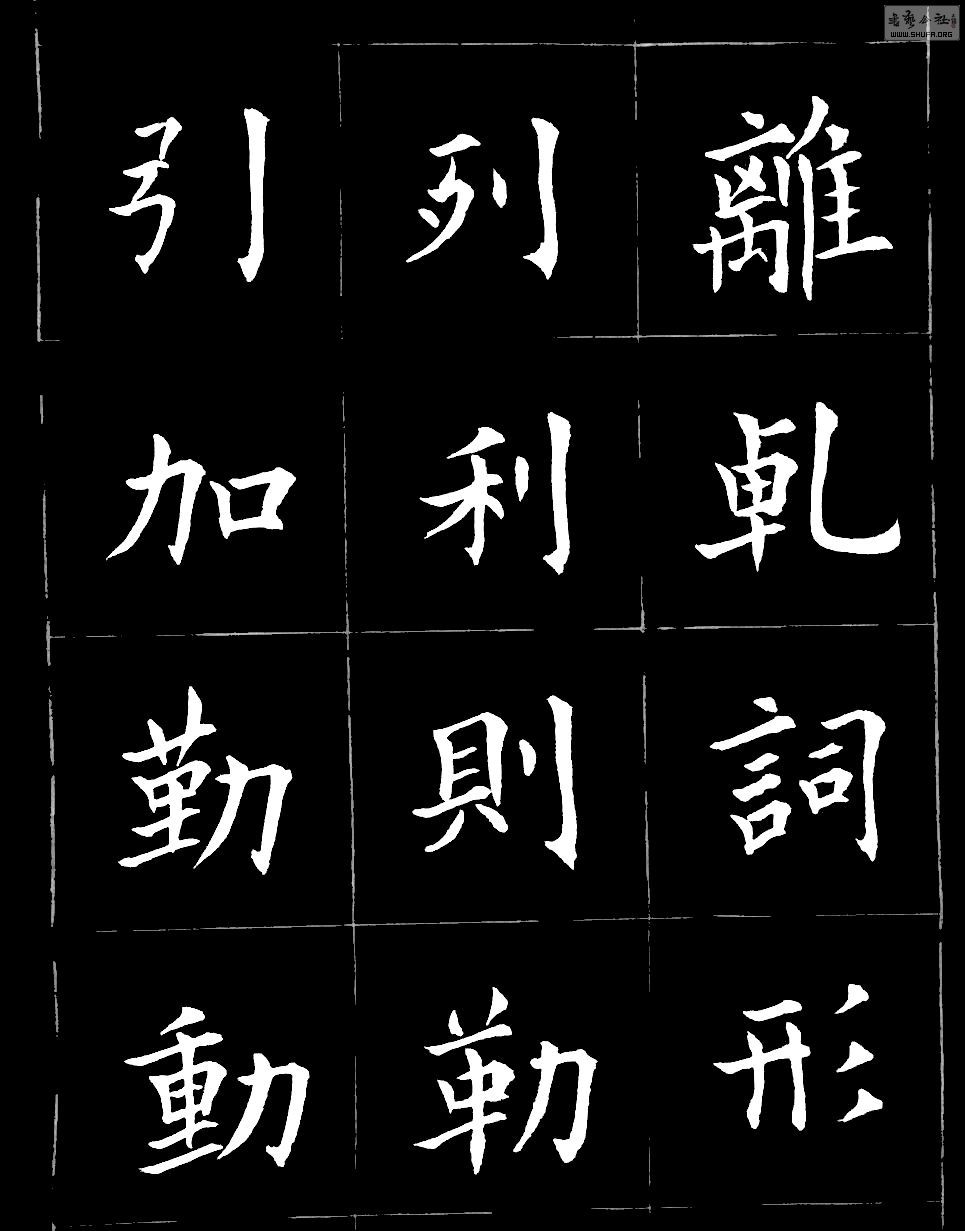 離乹詞形
列利則勒
引加勤動
書藝公社
WWW.SHUFA.ORG